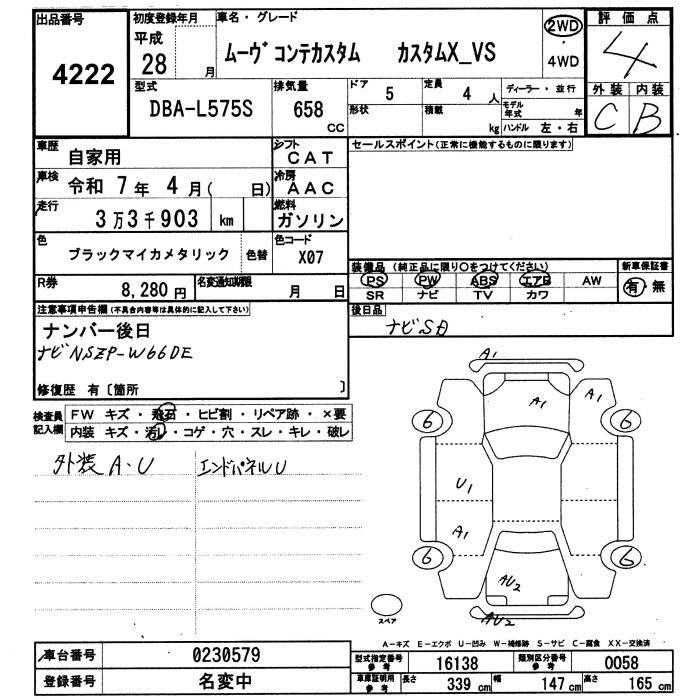 出品番号 初度登録年月 車名・グレード 評価点
4222 平成 28 月 ムーヴコンテカスタム カスタムX_VS 2WD・4WD 4
型式 排気量 ドア 5 定員 4人 ディーラー・並行 外装 内装
DBA-L575S 658 CC 形状 積載 kg モデル年式 年 C B
ハンドル 左・右
車歴 自家用 シフト CAT セールスポイント(正常に機能するものに限ります)
車検 令和 7年 4月( 日) 冷房 AAC
走行 3万3千903 km 燃料 ガソリン
色 ブラックマイカメタリック 色替 色コード X07
装備品 (純正品に限り○をつけてください) 新車保証書
R券 8,280円 名変通知期限 月 日 PS PW ABS エアB AW 有・無
SR ナビ TV カワ
注意事項申告欄(不具合内容等は具体的に記入して下さい) 後日品
ナンバー後日 ナビSD
ナビNSZP-W66DE
修復歴 有〔箇所 〕
検査員記入欄 FW キズ・飛石・ヒビ割・リペア跡・×要
内装 キズ・汚レ・コゲ・穴・スレ・キレ・破レ
外装 A・U エンドパネルU
A1
A1 A1
6 6
U1
A1
6 6
AU2
AU2
スペア
A-キズ E-エクボ U-凹み W-補修跡 S-サビ C-腐食 XX-交換済
車台番号 0230579 型式指定番号 参考 16138 類別区分番号 参考 0058
登録番号 名変中 車庫証明用 参考 長さ 339 cm 幅 147 cm 高さ 165 cm